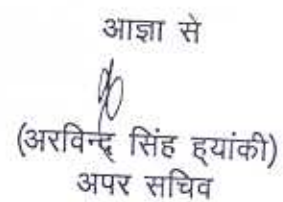 आज्ञा से
(अरविन्द सिंह ह्यांकी)
अपर सचिव